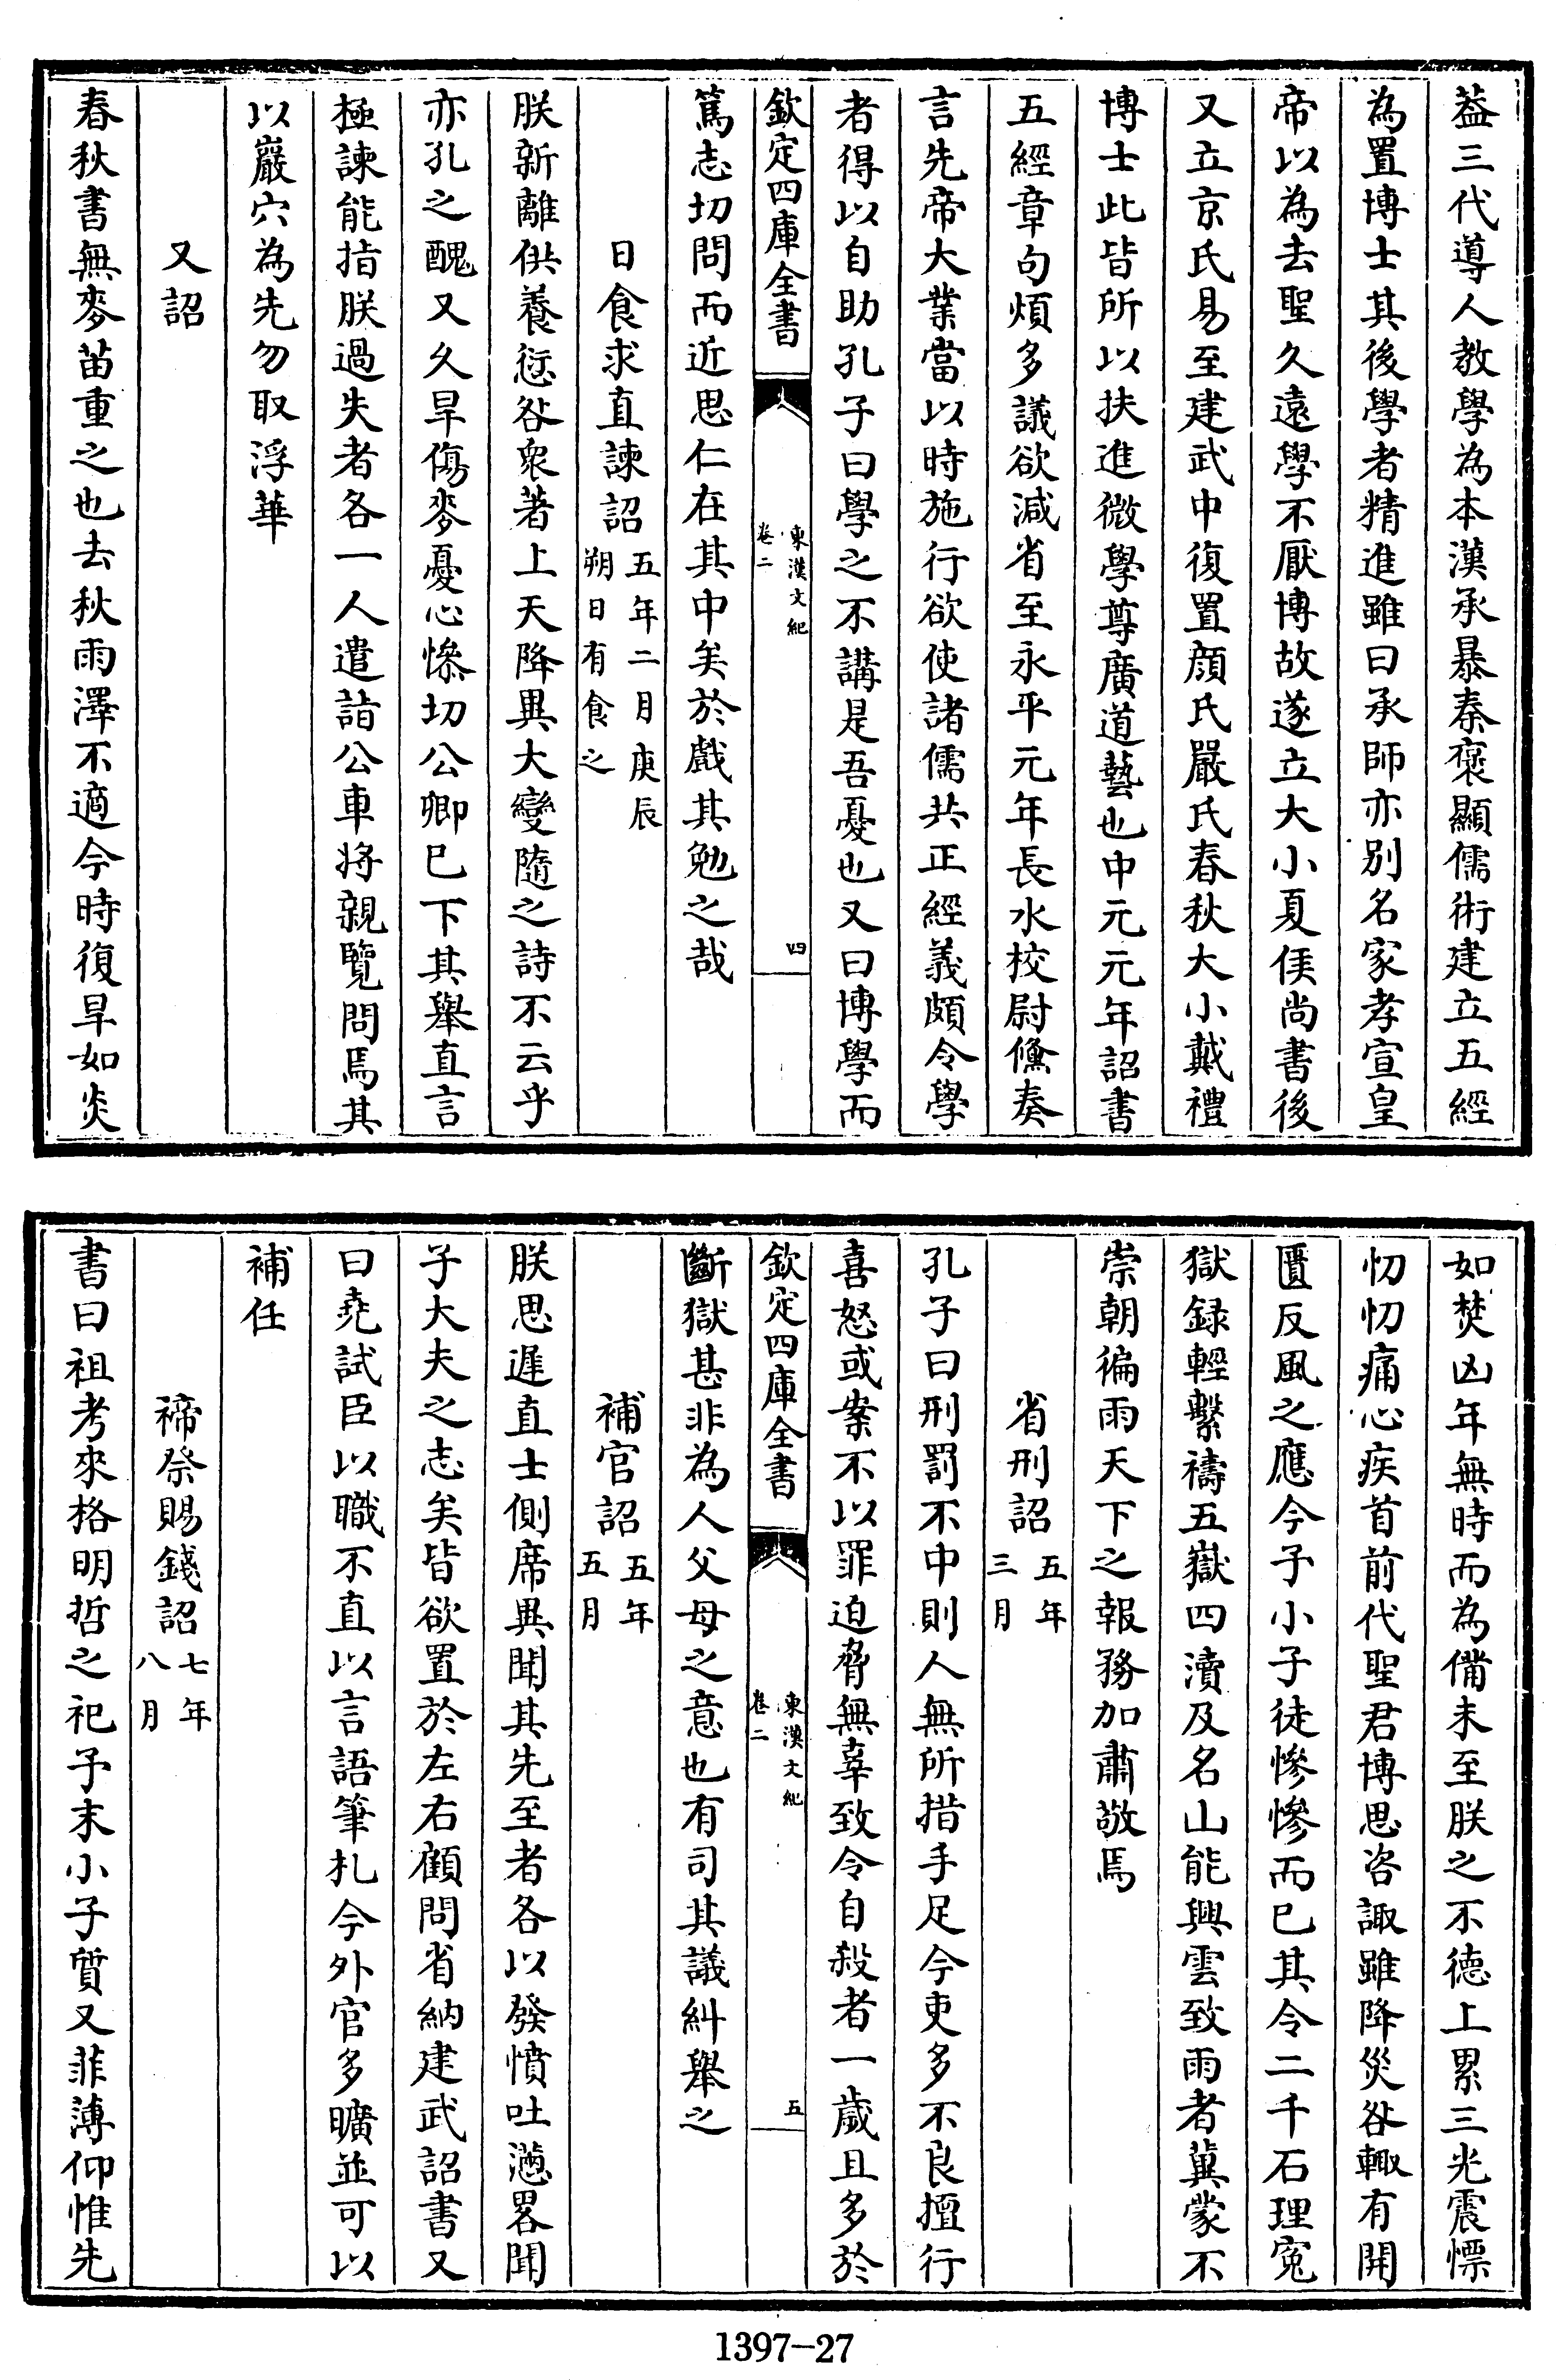 葢三代導人教學為本漢承暴秦襃顯儒術建立五經
為置博士其後學者精進雖曰承師亦别名家孝宣皇
帝以為去聖久遠學不厭博故遂立大小夏侯尚書後
又立京氏易至建武中復置顔氏嚴氏春秋大小戴禮
博士此皆所以扶進微學尊廣道藝也中元元年詔書
五經章句煩多議欲減省至永平元年長水校尉儵奏
言先帝大業當以時施行欲使諸儒共正經義頗令學
者得以自助孔子曰學之不講是吾憂也又曰博學而
欽定四庫全書
東漢文紀
卷二
四
篤志切問而近思仁在其中矣於戲其勉之哉
日食求直諫詔
五年二月庚辰
朔日有食之
朕新離供養愆咎衆著上天降異大變隨之詩不云乎
亦孔之醜又久旱傷麥憂心慘切公卿已下其舉直言
極諫能指朕過失者各一人遣詣公車將親覽問焉其
以巖穴為先勿取浮華
又詔
春秋書無麥苗重之也去秋雨澤不適今時復旱如炎
如焚凶年無時而為備未至朕之不德上累三光震慄
忉忉痛心疾首前代聖君博思咨諏雖降災咎輒有開
匱反風之應今予小子徒慘慘而已其令二千石理寃
獄録輕繫禱五嶽四瀆及名山能興雲致雨者冀蒙不
崇朝徧雨天下之報務加肅敬焉
省刑詔
五年
三月
孔子曰刑罰不中則人無所措手足今吏多不良擅行
喜怒或案不以罪迫脅無辜致令自殺者一歲且多於
欽定四庫全書
東漢文紀
卷二
五
斷獄甚非為人父母之意也有司其議糾舉之
補官詔
五年
五月
朕思遲直士側席異聞其先至者各以發憤吐懣畧聞
子大夫之志矣皆欲置於左右顧問省納建武詔書又
曰堯試臣以職不直以言語筆札今外官多曠並可以
補任
禘祭賜錢詔
七年
八月
書曰祖考來格明哲之祀予末小子質又菲薄仰惟先
1397-27